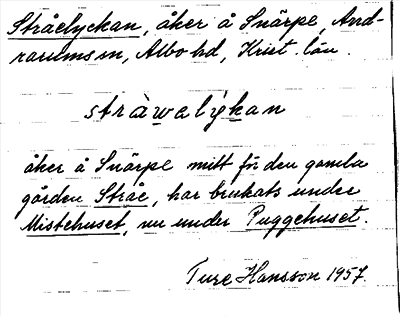 Stråelyckan, åker å Snärpe, And-
rarums sn, Albo hd, Krist. län.
stràwalýkan
åker å Snärpe mitt för den gamla
gården Stråe, har brukats under
Mistehuset, nu under Puggehuset.
Ture Hansson 1957.